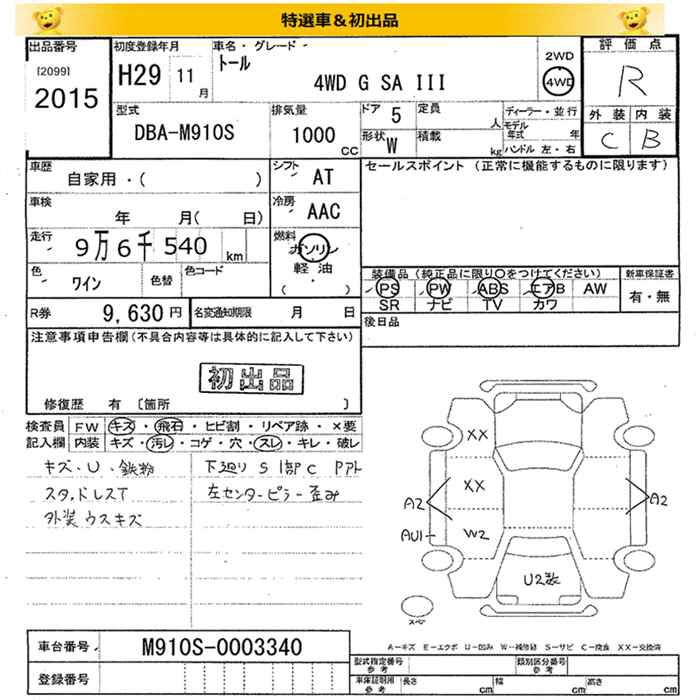 特選車＆初出品
出品番号 初度登録年月 車名・グレード 評価点
[2099] H29 11月 トール 2WD
2015 4WD G SA III 4WD R
型式 排気量 ドア 5 定員 人 ディーラー・並行 外装 内装
DBA-M910S 1000 CC 形状 W 積載 kg モデル年式 年 C B
ハンドル 左・右
車歴 シフト AT セールスポイント (正常に機能するものに限ります)
自家用・( )
車検 冷房 AAC
年 月( 日)
走行 9万6千540 km 燃料 ガソリン
軽油
( ・ )
色 ワイン 色替 色コード 装備品 (純正品に限り○をつけてください) 新車保証書
PS PW ABS エアB AW 有・無
SR ナビ TV カワ
R券 9,630円 名変通知期限 月 日 後日品
注意事項申告欄(不具合内容等は具体的に記入して下さい)
初出品
修復歴 有 〔箇所 〕
検査員 FW キズ・飛石・ヒビ割・リペア跡・×要
記入欄 内装 キズ・汚レ・コゲ・穴・スレ・キレ・破レ
キズ・U・鉄粉 下廻り S 1部C Pアト
スタッドレスT 左センターピラー歪み
外装ウスキズ
XX
XX
A2 A2
AU1 W2
U2数
スペア
A－キズ E－エクボ U－凹み W－補修跡 S－サビ C－腐食 XX－交換済
車台番号 M910S-0003340
型式指定番号 参考 類別区分番号 参考
登録番号 車庫証明用 参考 長さ cm 幅 cm 高さ cm